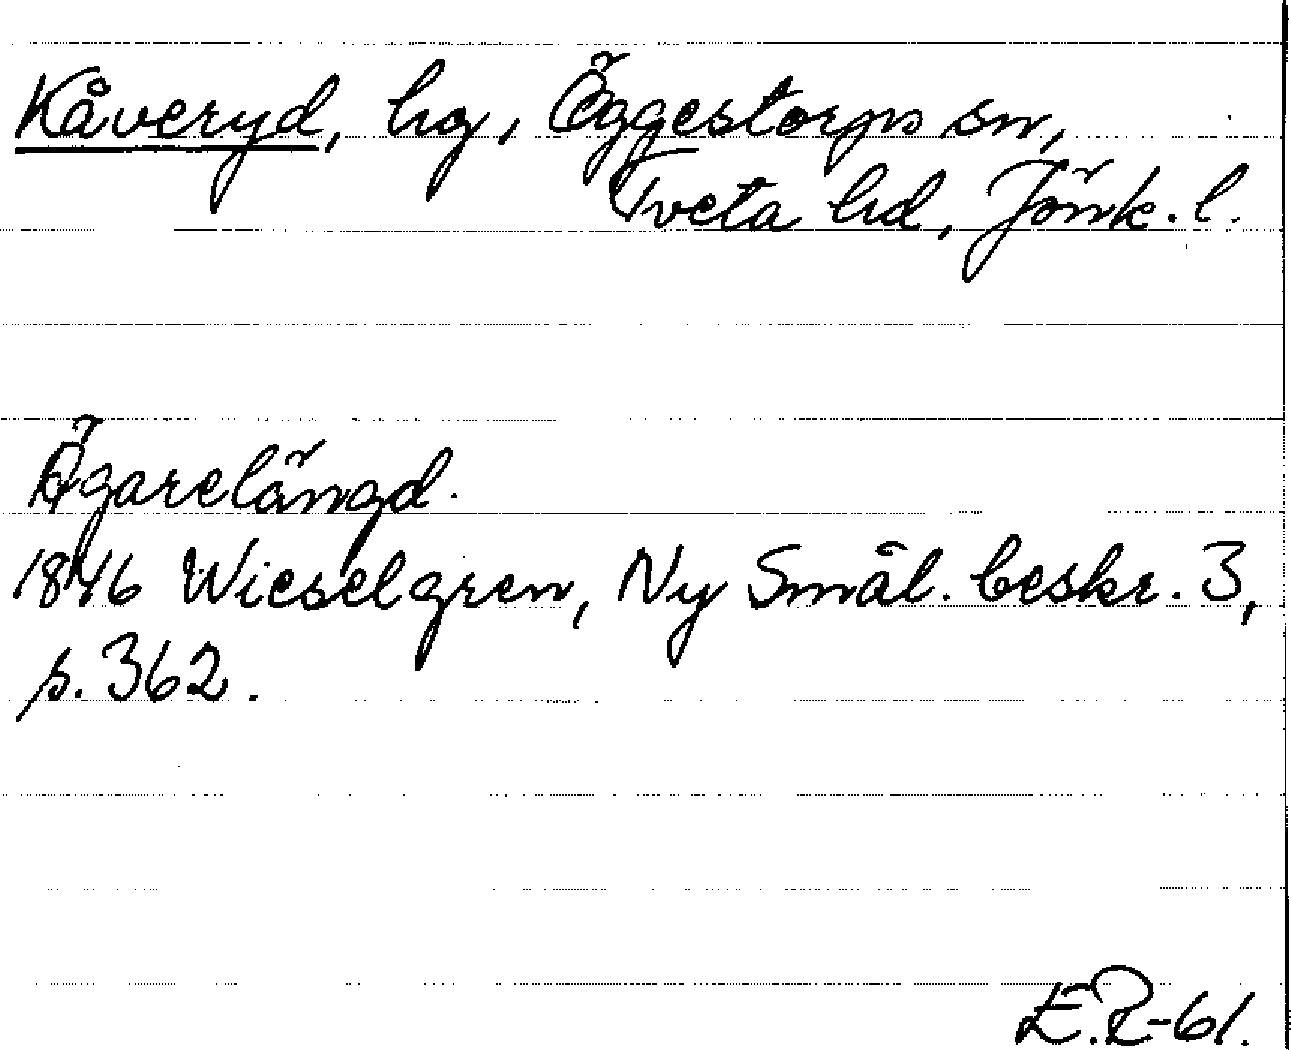 Kåveryd, hg, Öggestorps sn,
Tveta hd, Jönk. l.
Ägarelängd.
1846 Wieselgren, Ny Smål. beskr. 3,
s. 362.
E.R-61.